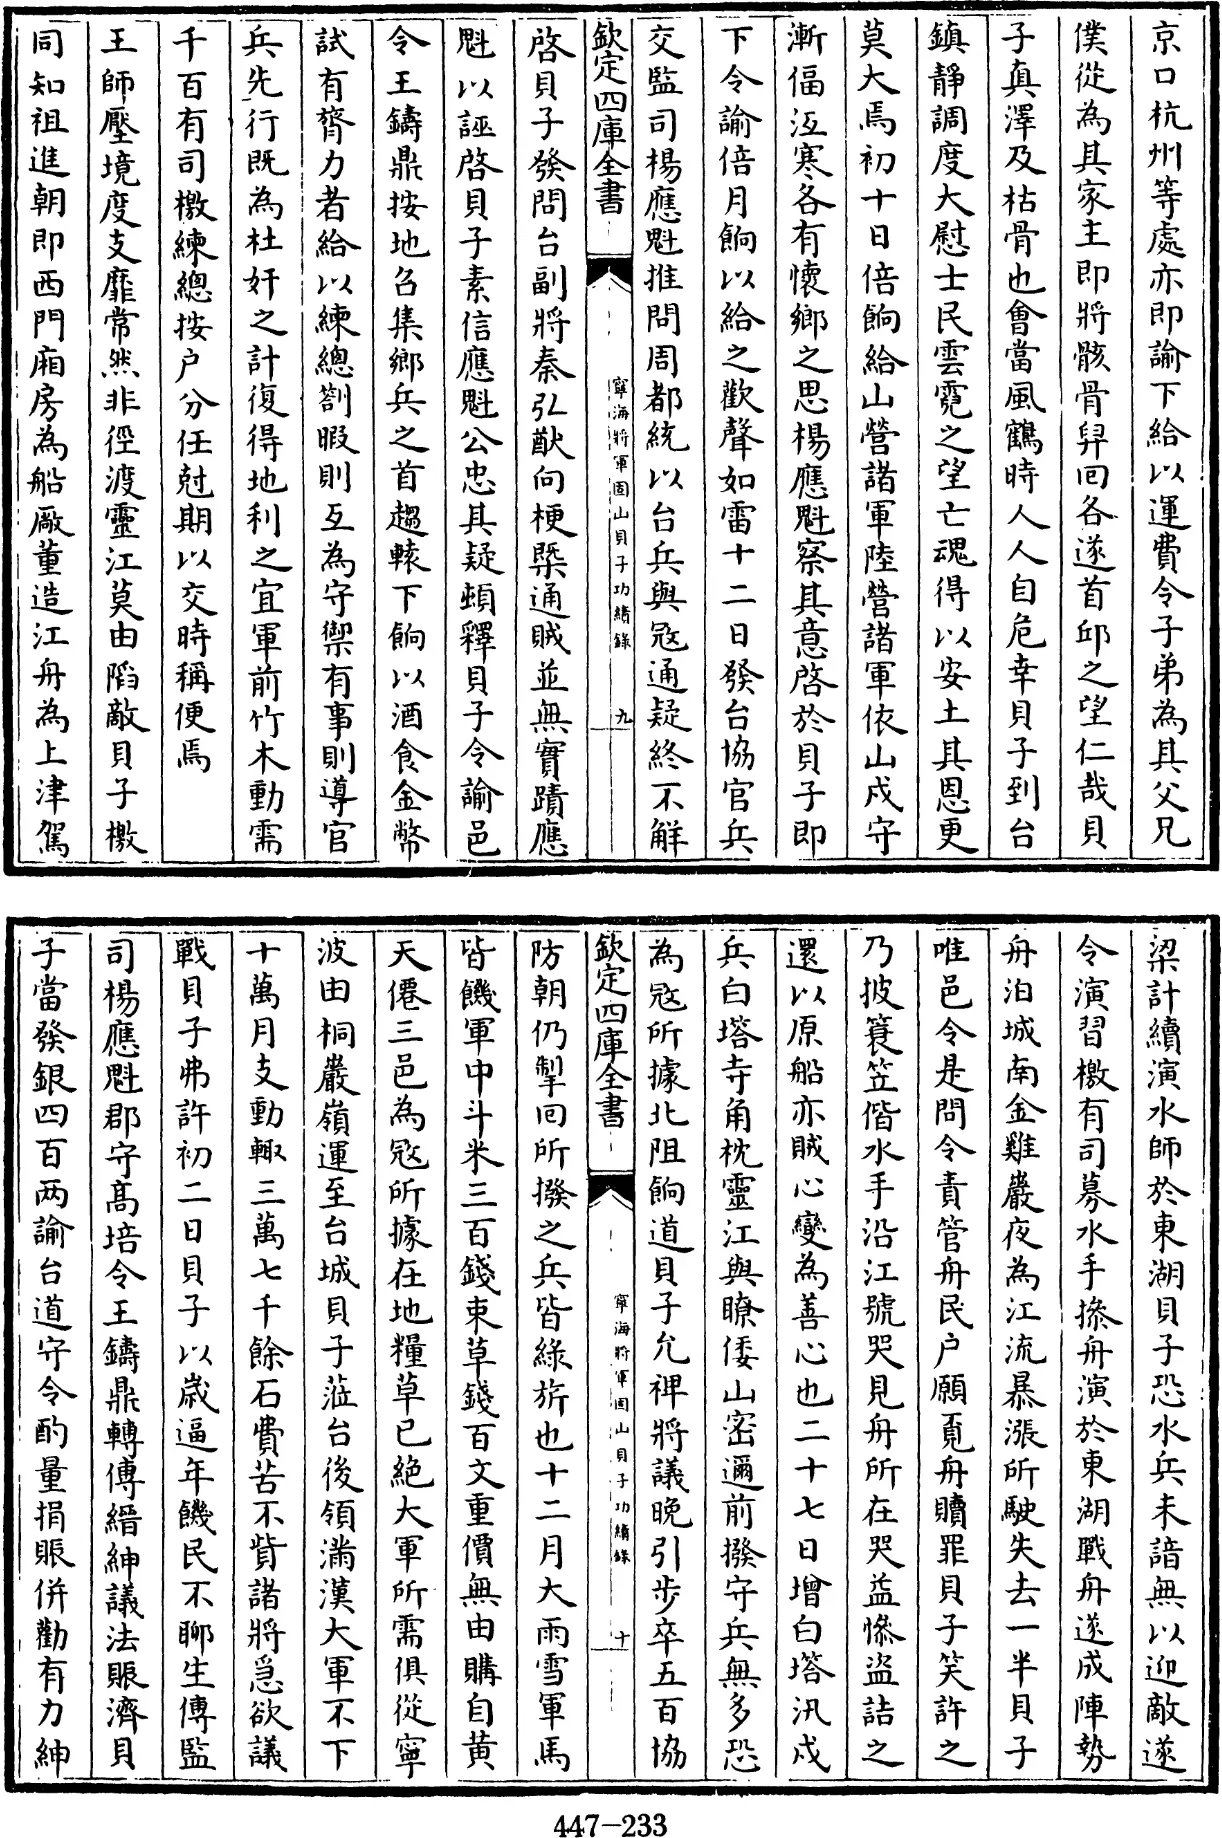 京口杭州等處亦即諭下給以運費令子弟為其父兄
僕從為其家主即將骸骨舁回各遂首邱之望仁哉貝
子真澤及枯骨也會當風鶴時人人自危幸貝子到台
鎮靜調度大慰士民雲霓之望亡魂得以安土其恩更
莫大焉初十日倍餉給山營諸軍陸營諸軍依山戍守
漸偪沍寒各有懷鄉之思楊應魁察其意啓於貝子即
下令諭倍月餉以給之歡聲如雷十二日發台協官兵
交監司楊應魁推問周都統以台兵與宼通疑終不解
欽定四庫全書
寧海將軍固山貝子功績錄
九
啓貝子發問台副將秦弘猷向梗槩通賊並無實蹟應
魁以誣啓貝子素信應魁公忠其疑頓釋貝子令諭邑
令王鑄鼎按地召集鄉兵之首趨轅下餉以酒食金幣
試有膂力者給以練總劄暇則互為守禦有事則導官
兵先行既為杜奸之計復得地利之宜軍前竹木動需
千百有司檄練總按户分任尅期以交時稱便焉
王師壓境度支靡常然非徑渡靈江莫由陷敵貝子檄
同知祖進朝即西門廂房為船廠董造江舟為上津駕
梁計續演水師於東湖貝子恐水兵未諳無以迎敵遂
令演習檄有司募水手摻舟演於東湖戰舟遂成陣勢
舟泊城南金雞巖夜為江流暴漲所駛失去一半貝子
唯邑令是問令責管舟民户願覓舟贖罪貝子笑許之
乃披蓑笠偕水手沿江號哭見舟所在哭益慘盜詰之
還以原船亦賊心變為善心也二十七日增白塔汛戍
兵白塔寺角枕靈江與瞭倭山密邇前撥守兵無多恐
為宼所據北阻餉道貝子允禆將議晚引步卒五百協
欽定四庫全書
寧海將軍固山貝子功績錄
十
防朝仍掣回所撥之兵皆綠旂也十二月大雨雪軍馬
皆饑軍中斗米三百錢束草錢百文重價無由購自黄
天僊三邑為宼所據在地糧草已絶大軍所需俱從寧
波由桐巖嶺運至台城貝子蒞台後領滿漢大軍不下
十萬月支動輙三萬七千餘石費苦不貲諸將急欲議
戰貝子弗許初二日貝子以歲逼年饑民不聊生傳監
司楊應魁郡守高培令王鑄鼎轉傳縉紳議法賑濟貝
子當發銀四百两諭台道守令酌量捐賑併勸有力紳
447-233